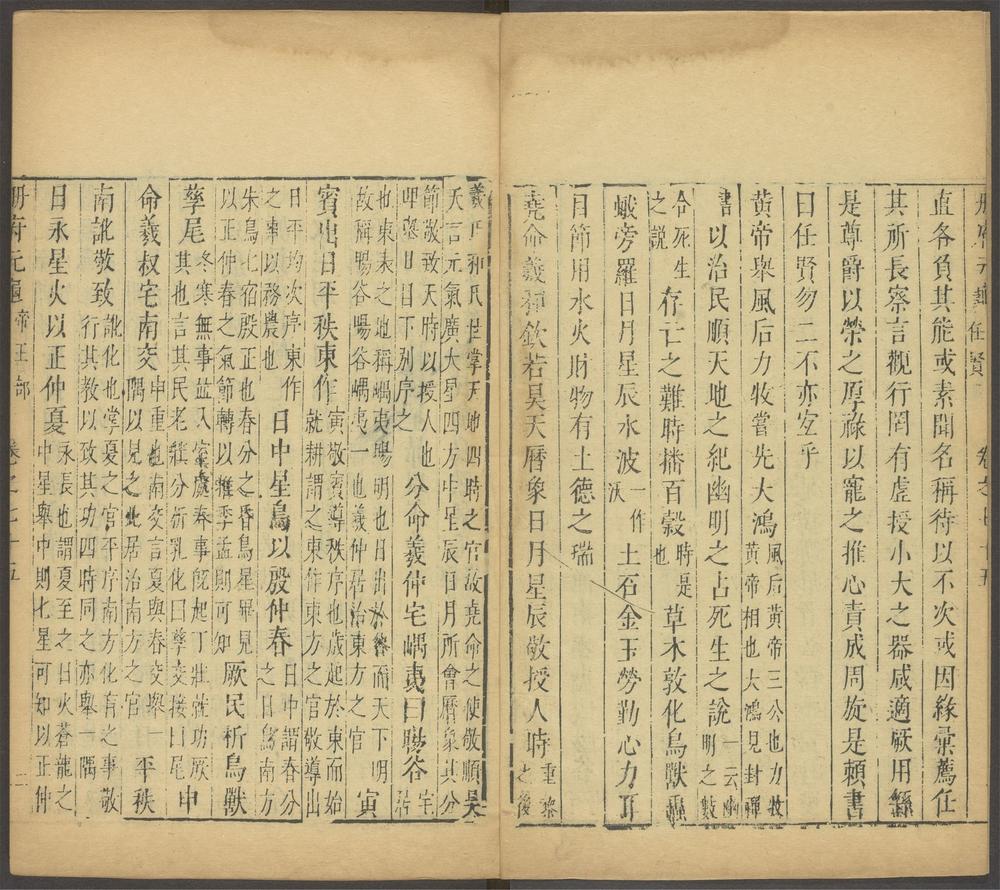 册府元龜 任賢 卷之七十五
直各負其能或素聞名稱待以不次或因緣彙薦任
其所長察言觀行罔有虛授小大之器咸適厥用繇
是尊爵以榮之厚祿以寵之推心責成周旋是賴書
曰任賢勿二不亦宜乎
黃帝舉風后力牧嘗先大鴻風后黃帝三公也力牧黃帝相也大鴻見封禪
書以治民順天地之紀幽明之占死生之說一云幽明之數
合死生之說存亡之難時播百穀時是也草木敦化鳥獸蟲
蛾旁羅日月星辰水波一作沃土石金玉勞勤心力耳
目節用水火財物有土德之瑞
堯命羲和欽若昊天曆象日月星辰敬授人時重黎之後
羲氏和氏世掌天地四時之官故堯命之使敬順昊
天言元氣廣大星四方中星辰日月所會曆象其分
節敬致天時以授人也分命羲仲宅嵎夷曰暘谷宅居
呷舉日目下別序之
也東表之地稱嵎夷暘明也日出於谷而天下明
故稱暘谷暘谷嵎夷一也羲仲居治東方之官寅
賓出日平秩東作寅敬賓導秩序也歲起於東而始就耕謂之東作東方之官敬導出
日平均次序東作之事以務農也日中星鳥以殷仲春日中謂春分之日鳥南方
朱鳥七宿殷正也春分之昏鳥星畢見以正仲春之氣節轉以推季孟則可知厥民析鳥獸
孳尾冬寒無事並入室處春事既起丁壯就功厥其也言其民老壯分析乳化曰孳交接曰尾申
命羲叔宅南交申重也南交言夏與春交舉一隅以見之此居治南方之官平秩
南訛敬致訛化也掌夏之官平序南方化育之事敬行其教以致其功四時同之亦舉一隅
日永星火以正仲夏永長也謂夏至之日火蒼龍之中星舉中則七星可知以正仲
册府元龜 帝王部 卷之七十五 二